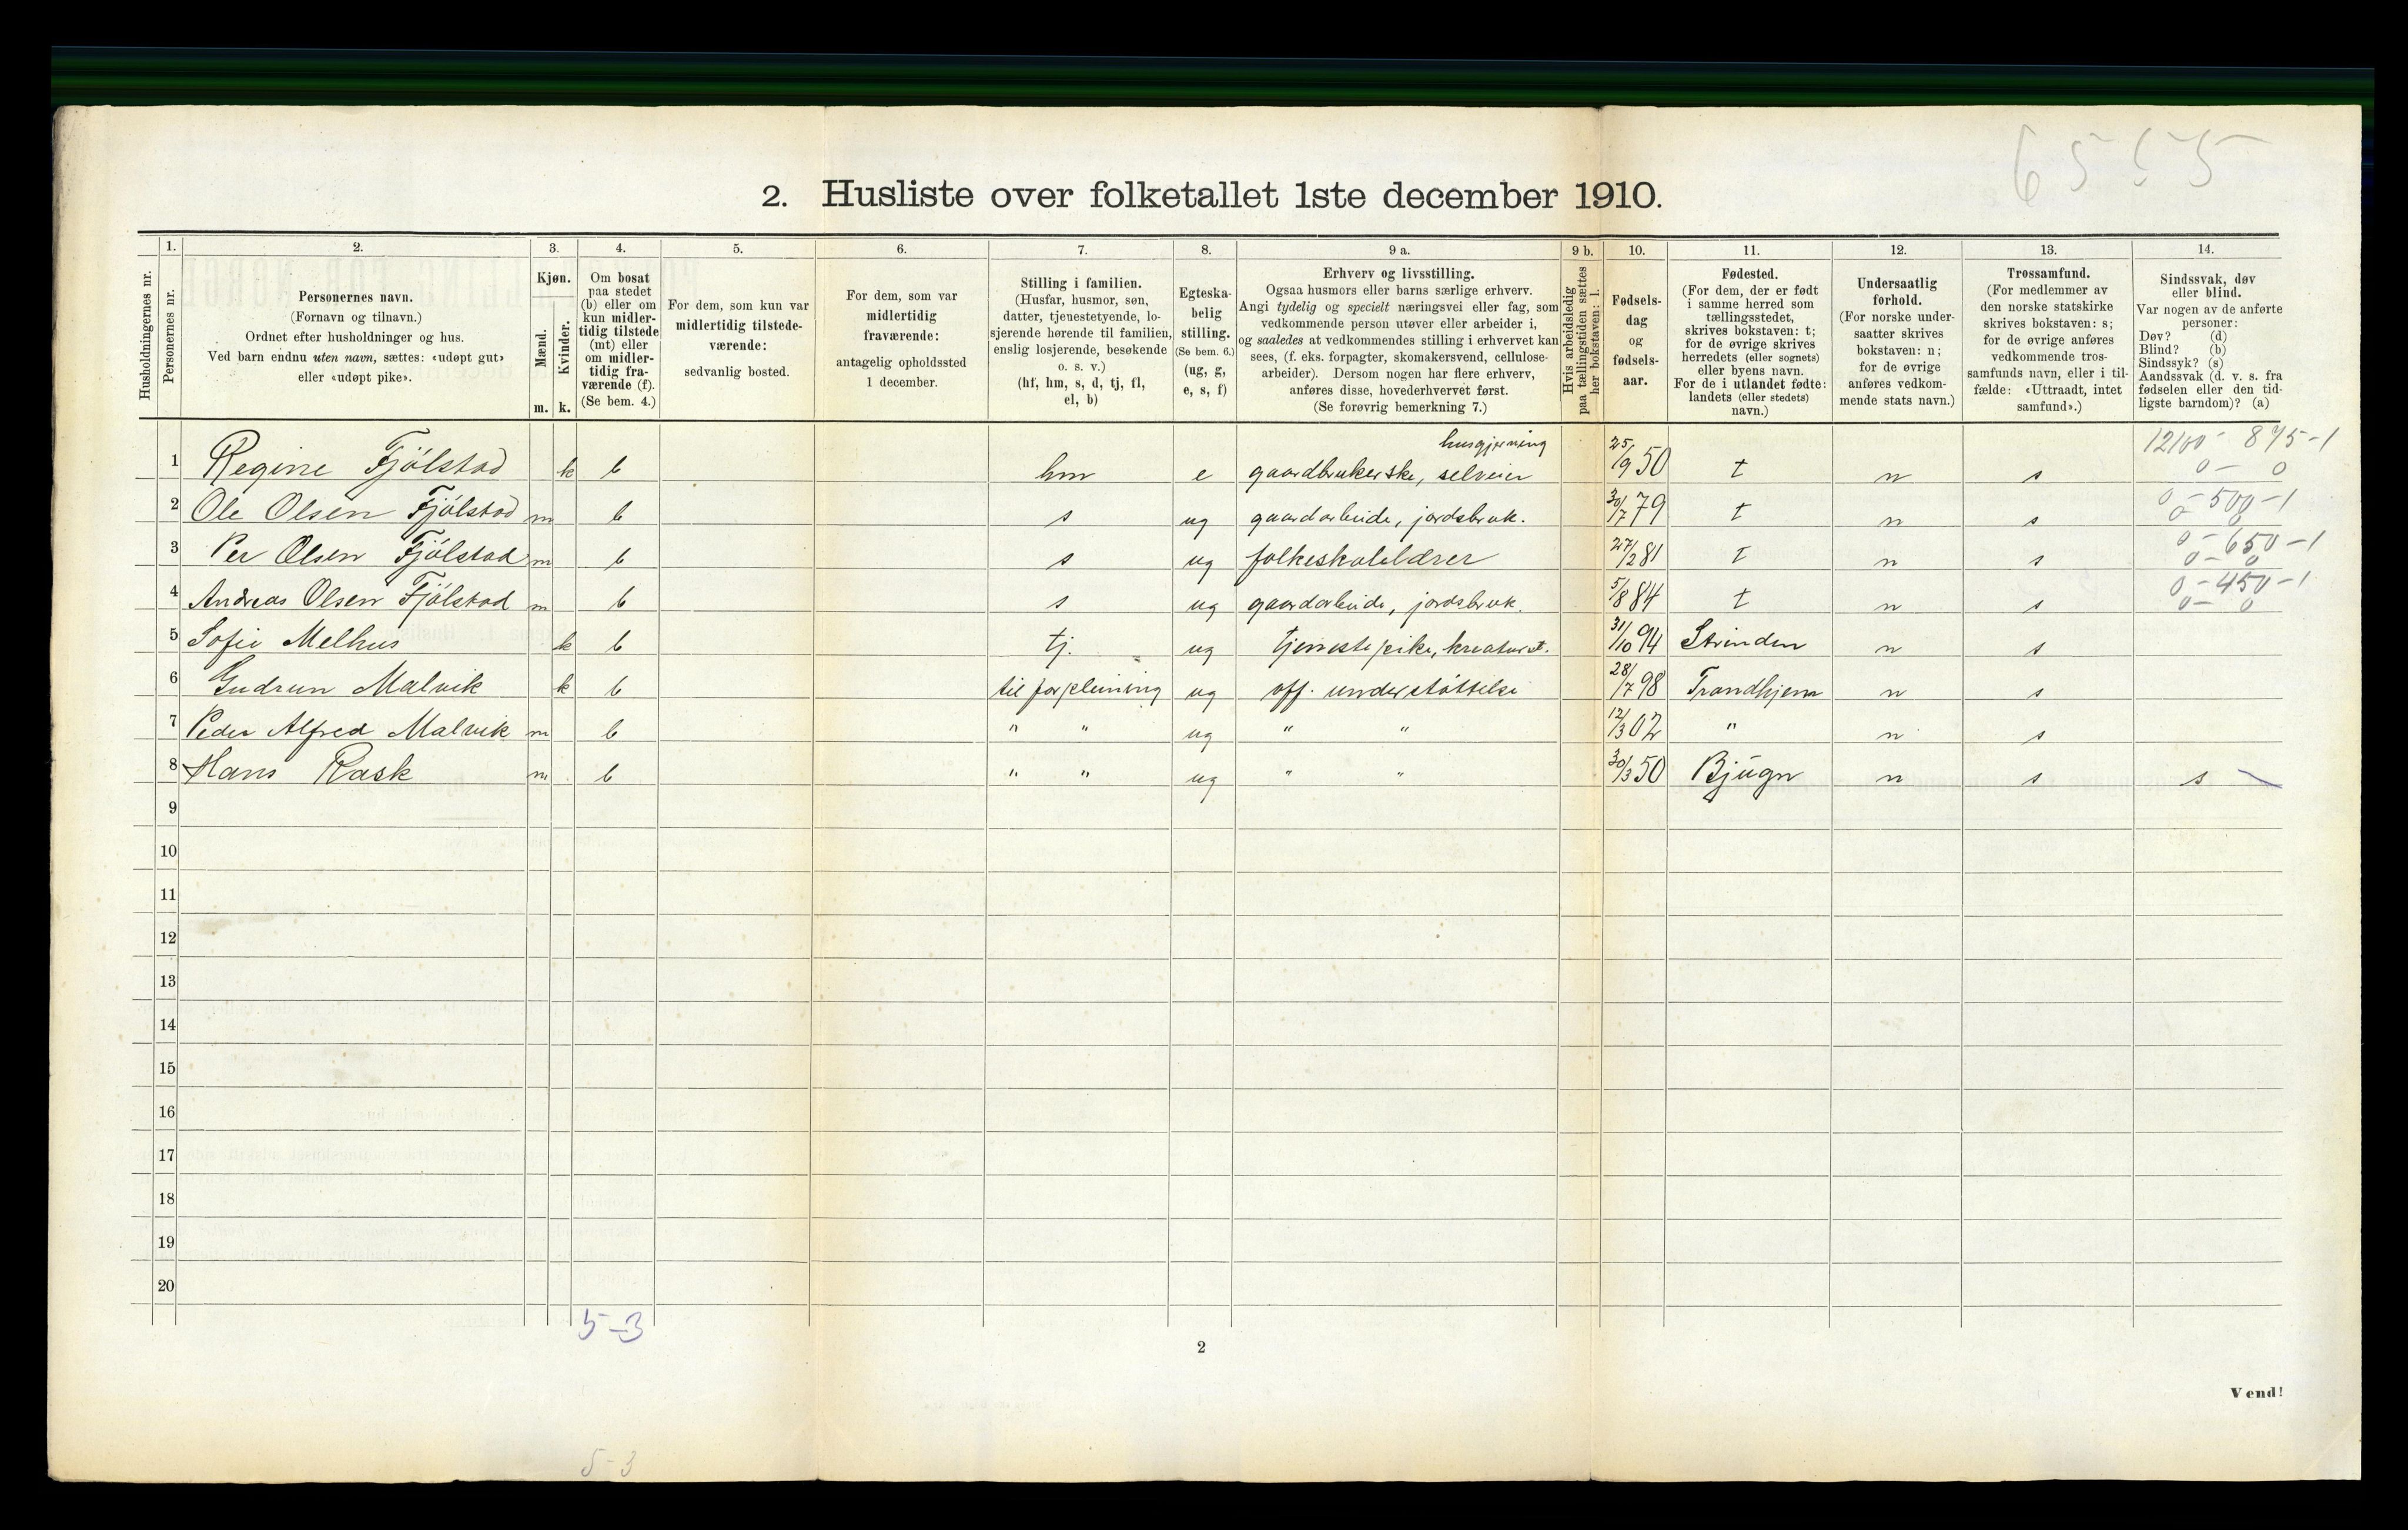 6555
2. Husliste over folketallet 1ste december 1910.
Husholdningernes nr.
1.
Personernes nr.
2.
Personernes navn.
(Fornavn og tilnavn.)
Ordnet efter husholdninger og hus.
Ved barn endnu uten navn, sættes: «udøpt gut»
eller «udøpt pike».
3.
Kjøn.
Mænd.
m.
Kvinder.
k.
4.
Om bosat
paa stedet
(b) eller om
kun midler-
tidig tilstede
(mt) eller
om midler-
tidig fra-
værende (f).
(Se bem. 4.)
5.
For dem, som kun var
midlertidig tilstede-
værende:
sedvanlig bosted.
6.
For dem, som var
midlertidig
fraværende:
antagelig opholdssted
1 december.
7.
Stilling i familien.
(Husfar, husmor, søn,
datter, tjenestetyende, lo-
sjerende hørende til familien,
enslig losjerende, besøkende
o. s. v.)
(hf, hm, s, d, tj, fl,
el, b)
8.
Egteska-
belig
stilling.
(Se bem. 6.)
(ug, g,
e, s, f)
9 a.
Erhverv og livsstilling.
Ogsaa husmors eller barns særlige erhverv.
Angi tydelig og specielt næringsvei eller fag, som
vedkommende person utøver eller arbeider i,
og saaledes at vedkommendes stilling i erhvervet kan
sees, (f. eks. forpagter, skomakersvend, cellulose-
arbeider). Dersom nogen har flere erhverv,
anføres disse, hovederhvervet først.
(Se forøvrig bemerkning 7.)
9 b.
Hvis arbeidsledig
paa tællingstiden sættes
her bokstaven: l.
10.
Fødsels-
dag
og
fødsels-
aar.
11.
Fødested.
(For dem, der er født
i samme herred som
tællingsstedet,
skrives bokstaven: t;
for de øvrige skrives
herredets (eller sognets)
eller byens navn.
For de i utlandet fødte:
landets (eller stedets)
navn.)
12.
Undersaatlig
forhold.
(For norske under-
saatter skrives
bokstaven: n;
for de øvrige
anføres vedkom-
mende stats navn.)
13.
Trossamfund.
(For medlemmer av
den norske statskirke
skrives bokstaven: s;
for de øvrige anføres
vedkommende tros-
samfunds navn, eller i til-
fælde: «Uttraadt, intet
samfund».)
14.
Sindssvak, døv
eller blind.
Var nogen av de anførte
personer:
Døv? (d)
Blind? (b)
Sindssyk? (s)
Aandssvak (d. v. s. fra
fødselen eller den tid-
ligste barndom)? (a)
husgjerning 12100 - 875-1
1 Regine Fjölstad k b hm e gaardbrukerske, selveier 25/9 50 t n s 0 - 0
0 - 500 - 1
2 Ole Olsen Fjölstad m b s ug gaardarbeide, jordsbruk. 30/7 79 t n s 0 - 0
0 - 650 - 1
3 Per Olsen Fjölstad m b s ug folkeskolelærer 27/2 81 t n s 0 - 0
0 - 450 - 1
4 Andreas Olsen Fjölstad m b s ug gaardarbeide, jordsbruk. 5/8 84 t n s 0 - 0
5 Sofie Melhus k b tj. ug tjenestepike, kreaturst. 31/10 94 Strinden n s
6 Gudrun Malvik k b til forpleining ug off. understöttelse 28/7 98 Trondhjem n s
7 Peder Alfred Malvik m b " " ug " " 12/3 02 " n s
8 Hans Rask m b " " ug " " 30/3 50 Bjugn n s s
9
10
11
12
13
14
15
16
17
18
19
20
5-3
2
Vend!
5-3